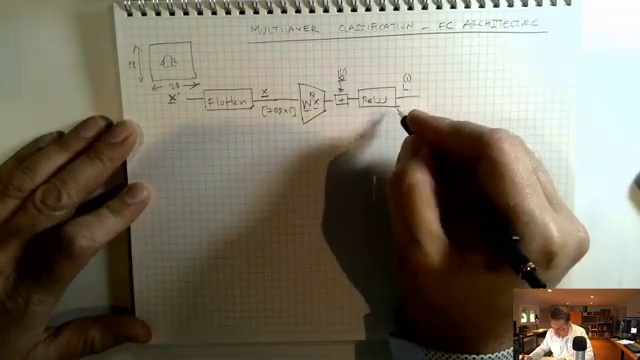 MULTILAYER CLASSIFICATION – FC ARCHITECTURE
28
28
x Flatten x [768x1] W x + ReLU
(1)